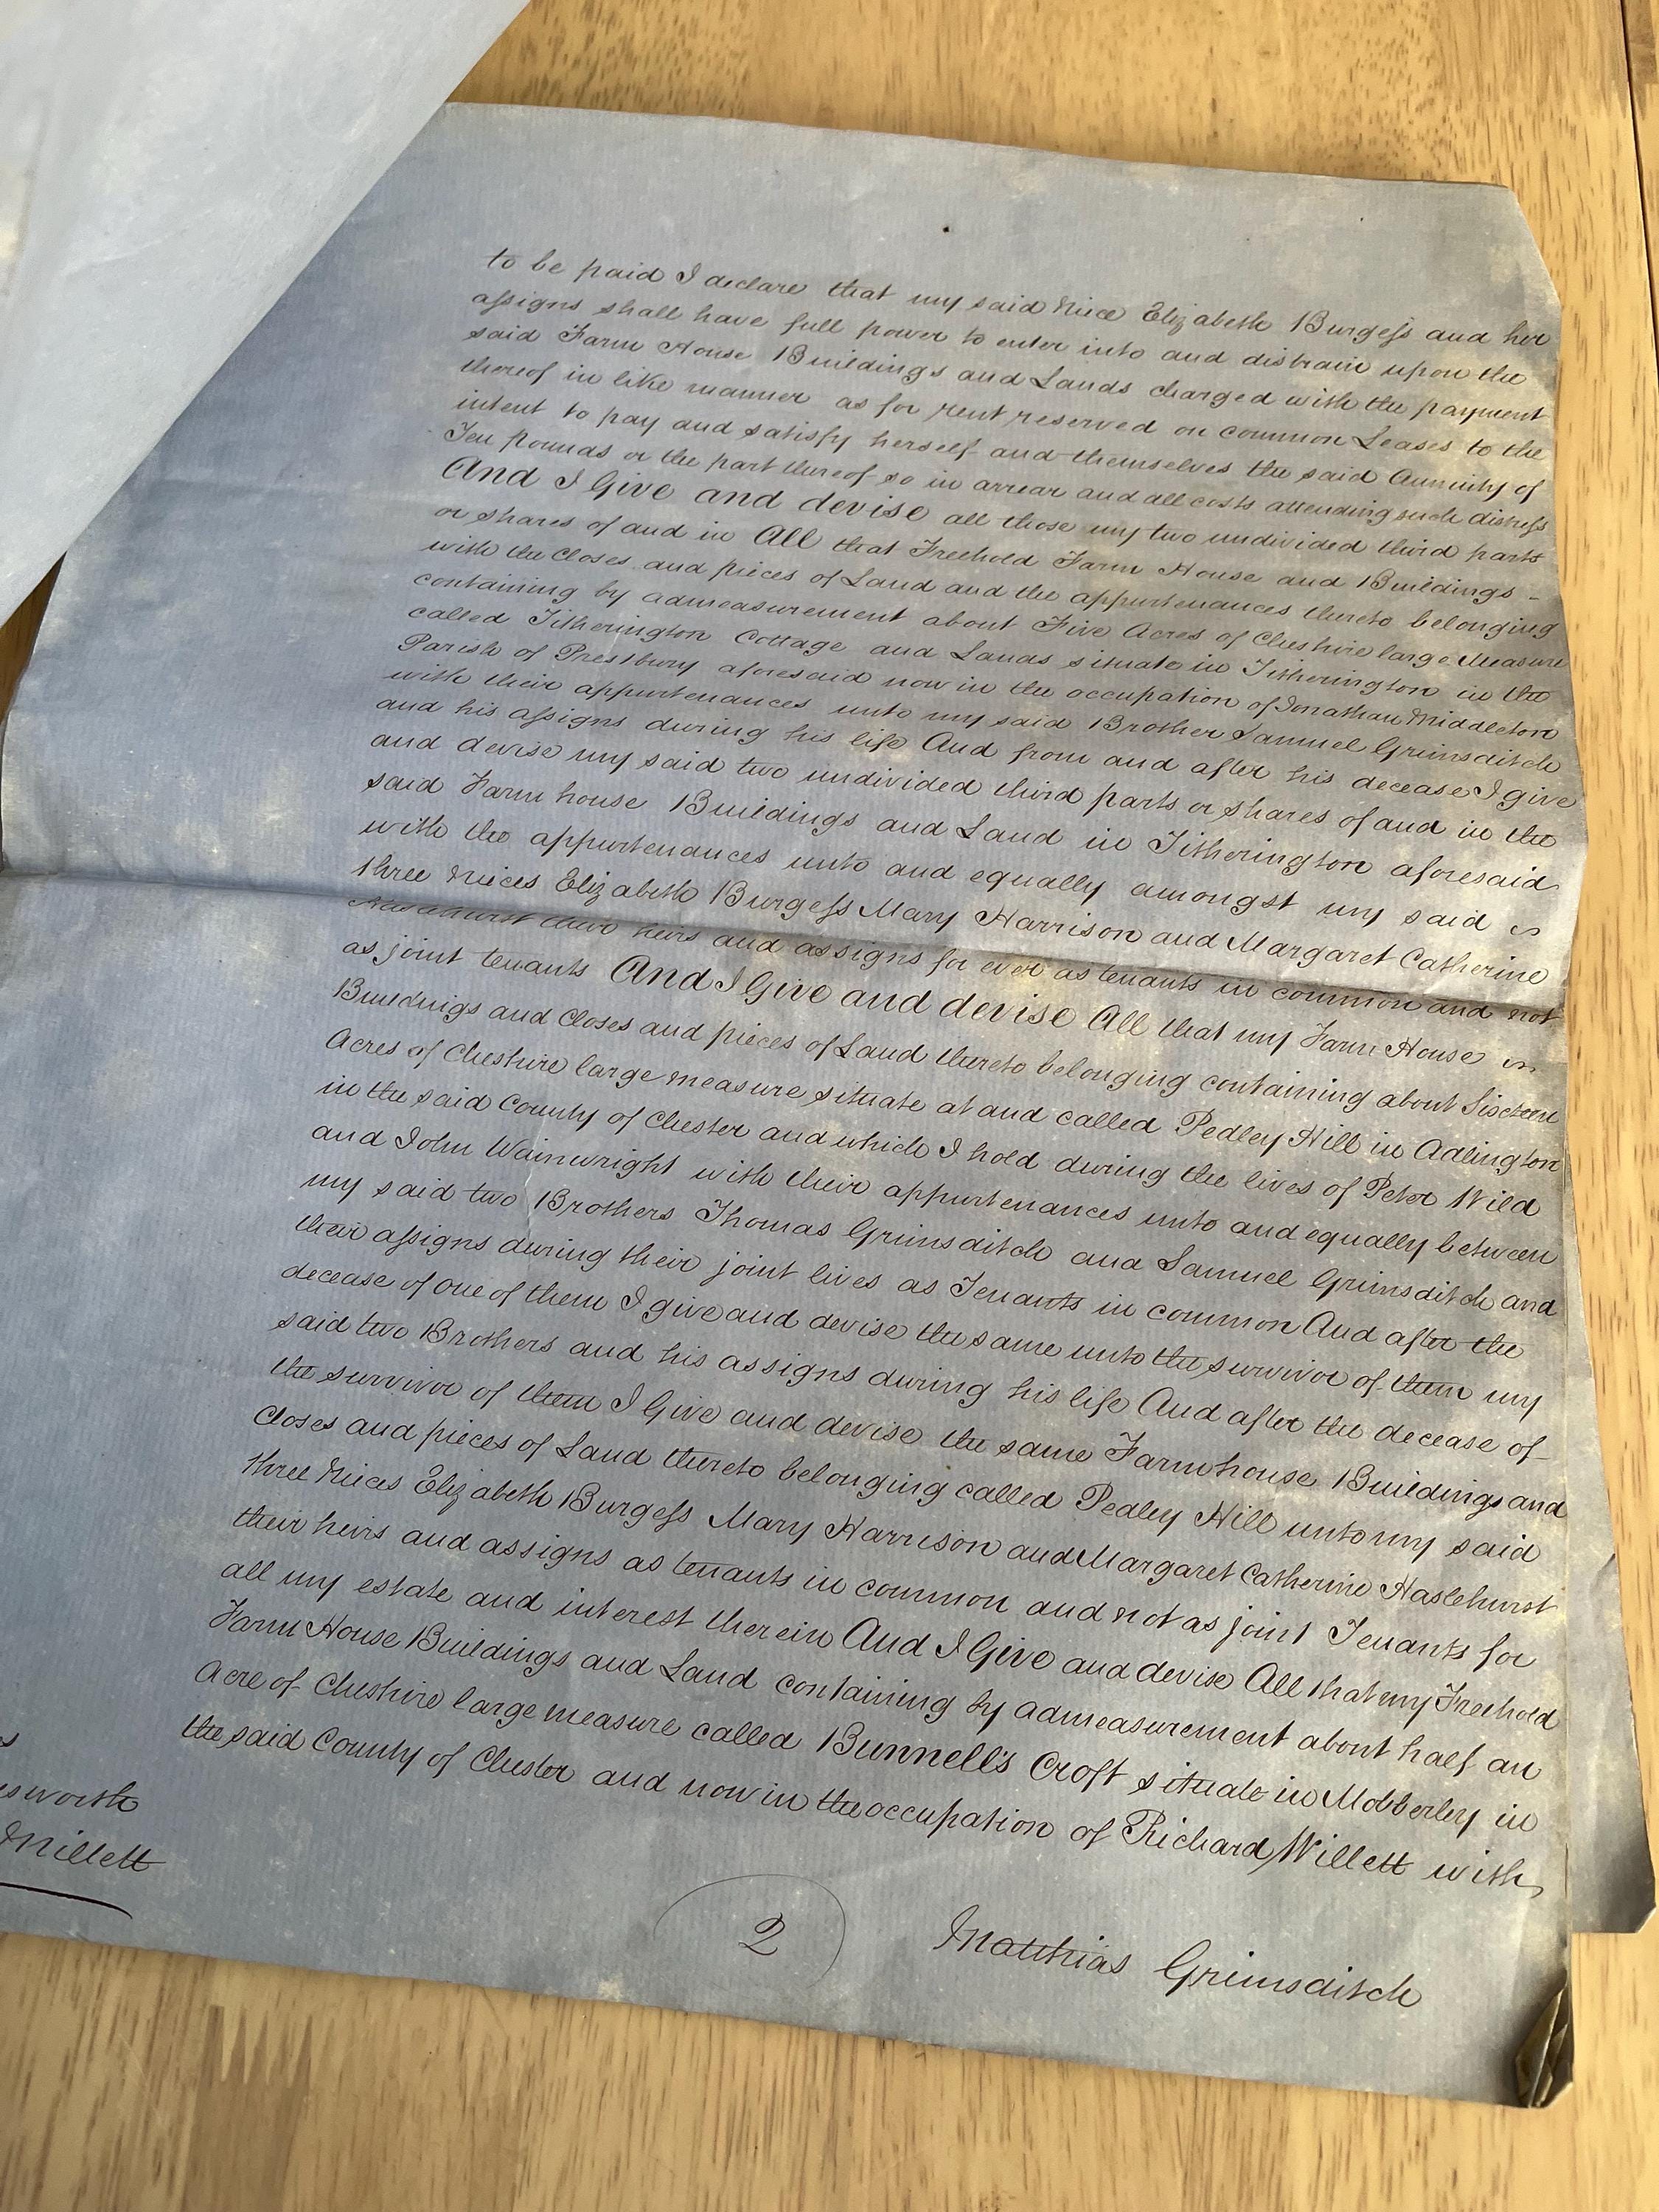 to be paid I declare that my said Niece Elizabeth Burgess and her
assigns shall have full power to enter into and distrain upon the
said Farm House Buildings and Lands charged with the payment
thereof in like manner as for rent reserved on common Leases to the
intent to pay and satisfy herself and themselves the said Annuity of
Ten pounds or the part thereof so in arrear and all costs attending such distress
And I Give and devise all those my two undivided third parts
or shares of and in All that Freehold Farm House and Buildings -
with the Closes and pieces of Land and the appurtenances thereto belonging
containing by admeasurement about Five Acres of Cheshire large Measure
called Titherington Cottage and Lands situate in Titherington in the
Parish of Prestbury aforesaid now in the occupation of Jonathan Middleton
with their appurtenances unto my said Brother Samuel Grimsditch
and his assigns during his life And from and after his decease I give
and devise my said two undivided third parts or shares of and in the
said Farm house Buildings and Land in Titherington aforesaid
with the appurtenances unto and equally amongst my said
three Nieces Elizabeth Burgess Mary Harrison and Margaret Catherine
Haslehurst their heirs and assigns for ever as tenants in common and not
as joint tenants And I Give and devise All that my Farm House
Buildings and Closes and pieces of Land thereto belonging containing about Sixteen
Acres of Cheshire large measure situate at and called Pedley Hill in Adlington
in the said County of Chester and which I hold during the lives of Peter Wild
and John Wainwright with their appurtenances unto and equally between
my said two Brothers Thomas Grimsditch and Samuel Grimsditch and
their assigns during their joint lives as Tenants in common And after the
decease of one of them I give and devise the same unto the survivor of them my
said two Brothers and his assigns during his life And after the decease of
the survivor of them I Give and devise the same Farmhouse Buildings and
Closes and pieces of Land thereto belonging called Pedley Hill unto my said
three Nieces Elizabeth Burgess Mary Harrison and Margaret Catherine Haslehurst
their heirs and assigns as tenants in common and not as joint Tenants for
all my estate and interest therein And I Give and devise All that my Freehold
Farm House Buildings and Land containing by admeasurement about half an
Acre of Cheshire large measure called Bunnell's Croft situate in Mobberley in
the said County of Chester and now in the occupation of Richard Willett with
sworth
Millett
2
Matthias Grimsditch